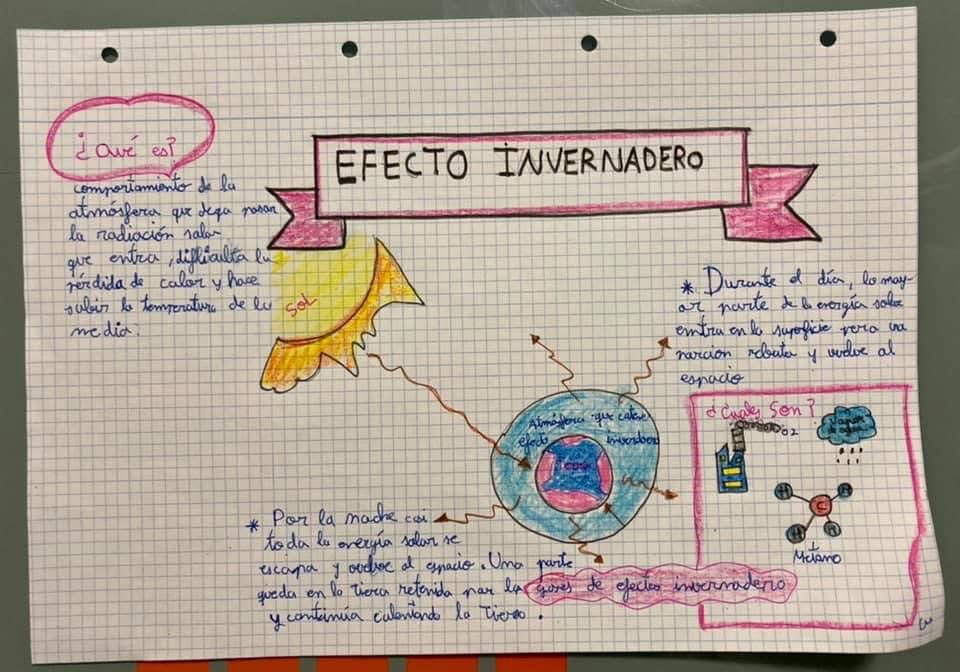 EFECTO INVERNADERO
¿Qué es?
comportamiento de la
atmósfera que dega pasar
la radiación solar
que entra, dificulta la
pérdida de calor y hace
subir la temperatura de la
media.
SOL
* Durante el día, la may-
or parte de la energía solar
entra en la superficie pero una
porción rebota y vuelve al
espacio
Atmósfera que
efecto invernadero
Tierra
¿Cuales Son?
O2
Vapor
de agua
H
H
C
H
H
Metano
* Por la noche casi
toda la energía solar se
escapa y vuelve al espacio. Una parte
queda en la tierra retenida por la gases de efectos invernadero
y continúa calentando la Tierra.